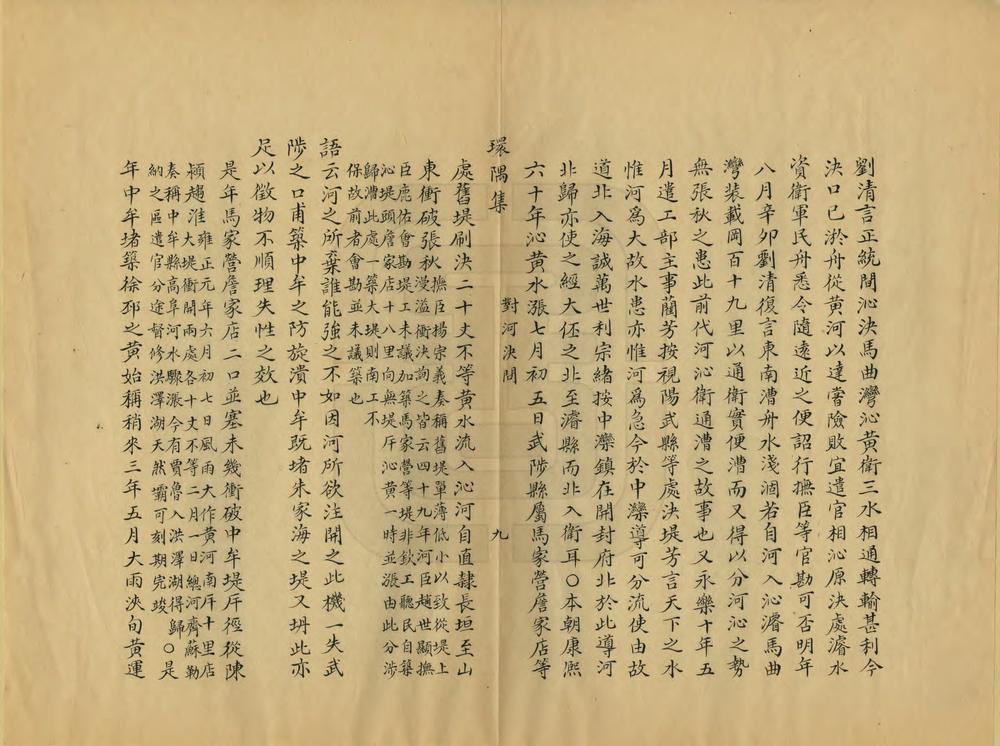 劉清言正統間沁決馬曲灣沁黃衛三水相通轉輸甚利今
決口已淤舟從黃河以達嘗險敗宜遣官相沁原決處濬水
資衛軍民舟悉令隨遠近之便詔行撫臣等官勘可否明年
八月辛卯劉清復言東南漕舟水淺涸若自河入沁濬馬曲
灣裝載岡百十九里以通衛實便漕而又得以分河沁之勢
無張秋之患此前代河沁衛通漕之故事也又永樂十年五
月遣工部主事藺芳按視陽武縣等處決堤芳言天下之水
惟河爲大故水患亦惟河爲急今於中灤導可分流使由故
道北入海誠萬世利宗緒按中灤鎮在開封府北於此導河
北歸亦使之經大伾之北至濬縣而北入衛耳○本朝康熙
六十年沁黃水漲七月初五日武陟縣屬馬家營詹家店等
環隅集
對河決問
九
處舊堤刷決二十丈不等黃水流入沁河自直隸長垣至山
東衝破張秋撫臣楊宗義奏稱舊堤單薄低小以致從堤上
漫溢衝決詢之皆云四十九年河臣趙世顯撫
臣鹿佑會勘堤工未議加築馬家營等堤非欽工聽民自築
沁堤頭詹家店十八里向無堤厈沁黃一時並漲由此分涉
歸漕此處一築大堤則南工不
保故前者會勘並未議築也
語云河之所棄誰能強之不如因河所欲注開之此機一失武
陟之口甫築中牟之防旋潰中牟既堵朱家海之堤又坍此亦
足以徵物不順理失性之效也
是年馬家營詹家店二口並塞未幾衝破中牟堤厈徑從陳
潁趨淮雍正元年六月初七日風雨大作黃河南厈十里店
大堤衝開兩處各十丈不等二月一日總河齊蘇勒
奏稱中牟縣高阜河水驟漲今有賈魯入洪澤湖得歸○是
納之區遣官分途督修洪澤湖天然壩可刻期完竣
年中牟堵築徐邳之黃始稱稍來三年五月大雨浹旬黃運